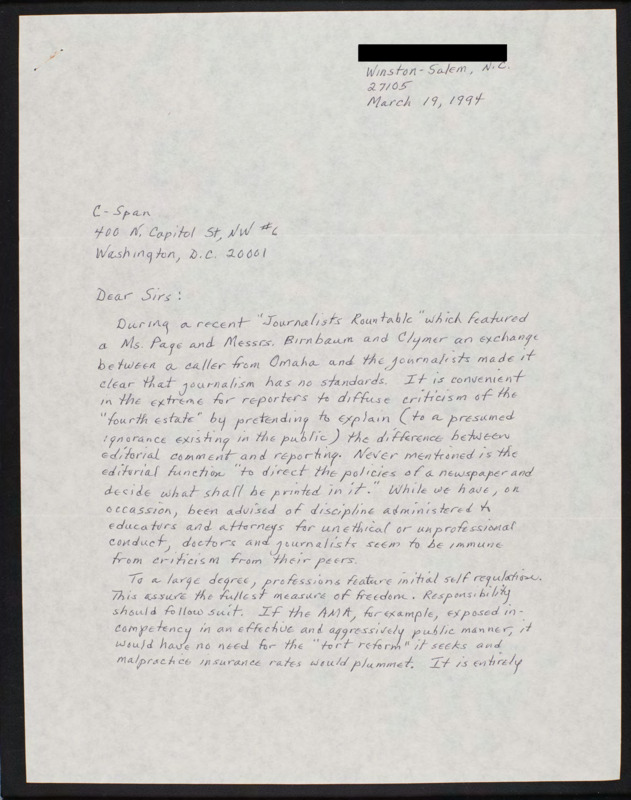 Winston-Salem, N.C.
27105
March 19, 1994
C-Span
400 N. Capitol St, NW #6
Washington, D.C. 20001
Dear Sirs:
During a recent "Journalists Rountable" which featured
a Ms. Page and Messrs. Birnbaum and Clymer an exchange
between a caller from Omaha and the journalists made it
clear that journalism has no standards. It is convenient
in the extreme for reporters to diffuse criticism of the
"fourth estate" by pretending to explain (to a presumed
ignorance existing in the public) the difference between
editorial comment and reporting. Never mentioned is the
editorial function "to direct the policies of a newspaper and
decide what shall be printed in it." While we have, on
occassion, been advised of discipline administered to
educators and attorneys for unethical or unprofessional
conduct, doctors and journalists seem to be immune
from criticism from their peers.
To a large degree, professions feature initial self regulation.
This assure the fullest measure of freedom. Responsibility
should follow suit. If the AMA, for example, exposed in-
competency in an effective and aggressively public manner, it
would have no need for the "tort reform" it seeks and
malpractice insurance rates would plummet. It is entirely